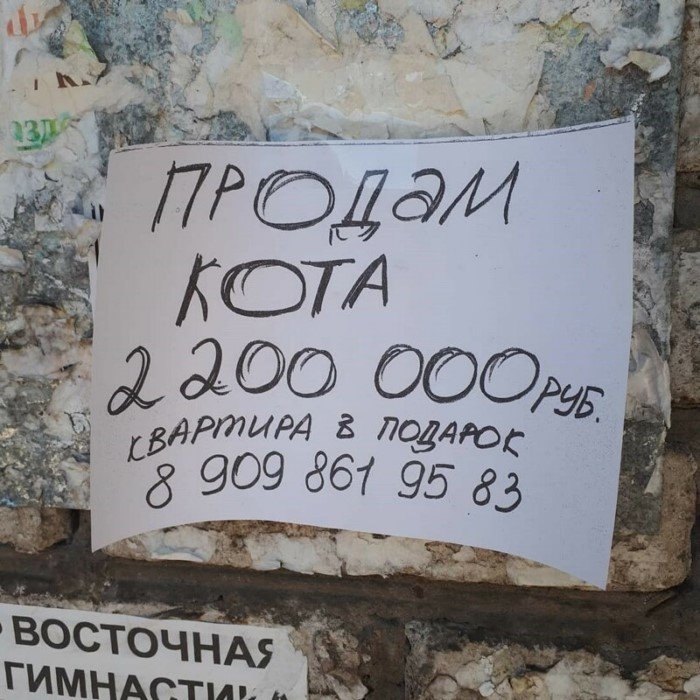 ПРОДАМ
КОТА
2 200 000 РУБ.
КВАРТИРА В ПОДАРОК
8 909 861 95 83
ВОСТОЧНАЯ